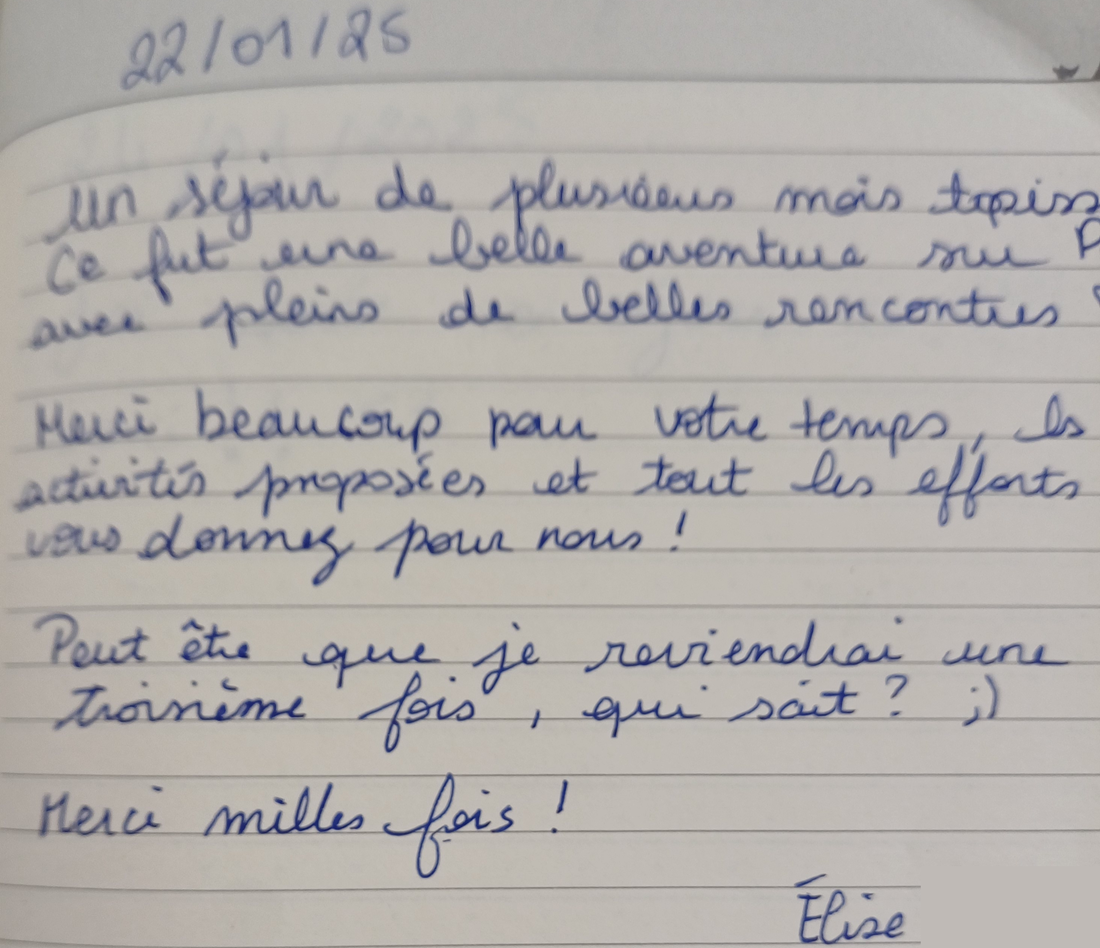 22/01/25
Un séjour de plusieurs mois
Ce fut une belle aventure sur
avec pleins de belles rencontres
Merci beaucoup pour votre temps, les
activités proposées et tout les efforts
vous donnez pour nous !
Peut être que je reviendrai une
troisième fois, qui sait ? ;)
Merci milles fois !
Élise